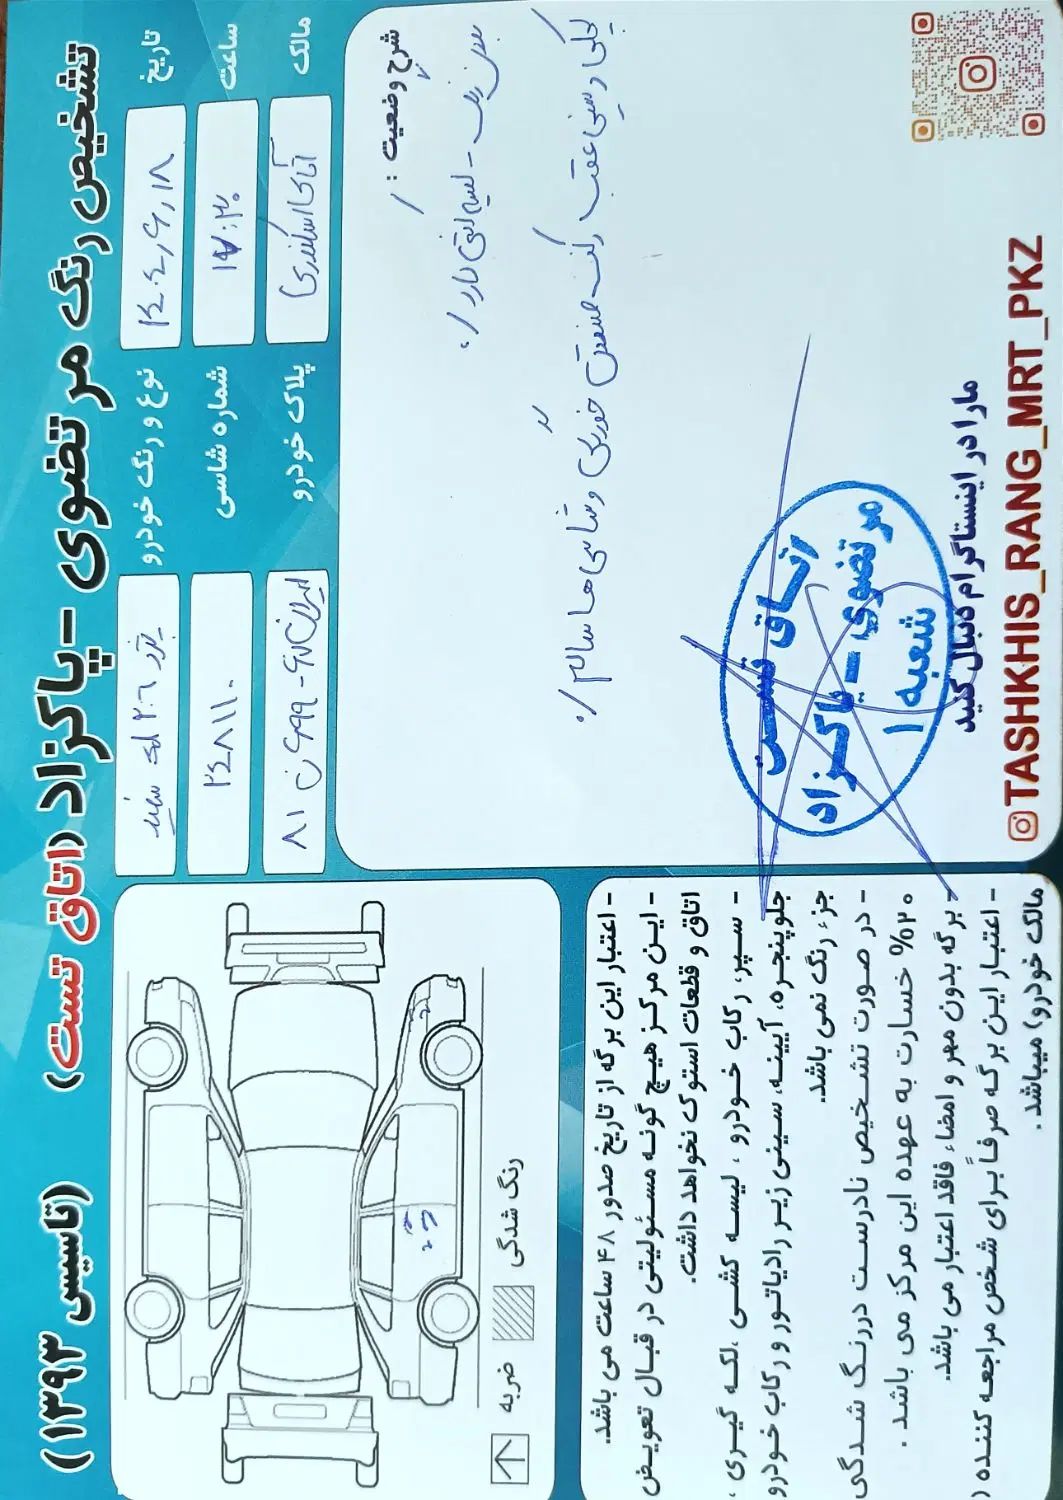 تشخیص رنگ مرتضوی - پاکزاد (اتاق تست) (تاسیس ۱۳۹۳)
تاریخ
۱۴۰۴,۶,۱۸
نوع و رنگ خودرو
پژو ۲۰۶ سفید
ساعت
۱۷:۳۰
شماره شاسی
۲۴۸۱۱۰
مالک
آقای اسکندری
پلاک خودرو
شرح وضعیت :
بدون رنگ - لیسه آفتی دارد /.
رکن صنعتی خوردگی و شاسی ها سالم /.
اتاق تست
مرتضوی - پاکزاد
شعبه ۱
ما را در اینستاگرام دنبال کنید
TASHKHIS_RANG_MRT_PKZ
ضربه
رنگ شدگی
- اعتبار این برگه از تاریخ صدور ۴۸ ساعت می باشد.
- این مرکز هیچ گونه مسئولیتی در قبال تعویض
اتاق و قطعات استوک نخواهد داشت.
- سپر، رکاب خودرو ، لیسه کشی ،لکه گیری ،
جلوپنجره، آیینه، سینی زیر رادیاتور و رکاب خودرو
جزء رنگ نمی باشد.
- در صورت تشخیص نادرست در رنگ شدگی
۲۰% خسارت به عهده این مرکز می باشد .
- برگه بدون مهر و امضاء فاقد اعتبار می باشد.
- اعتبار این برگه صرفاً برای شخص مراجعه کننده (
مالک خودرو) میباشد .